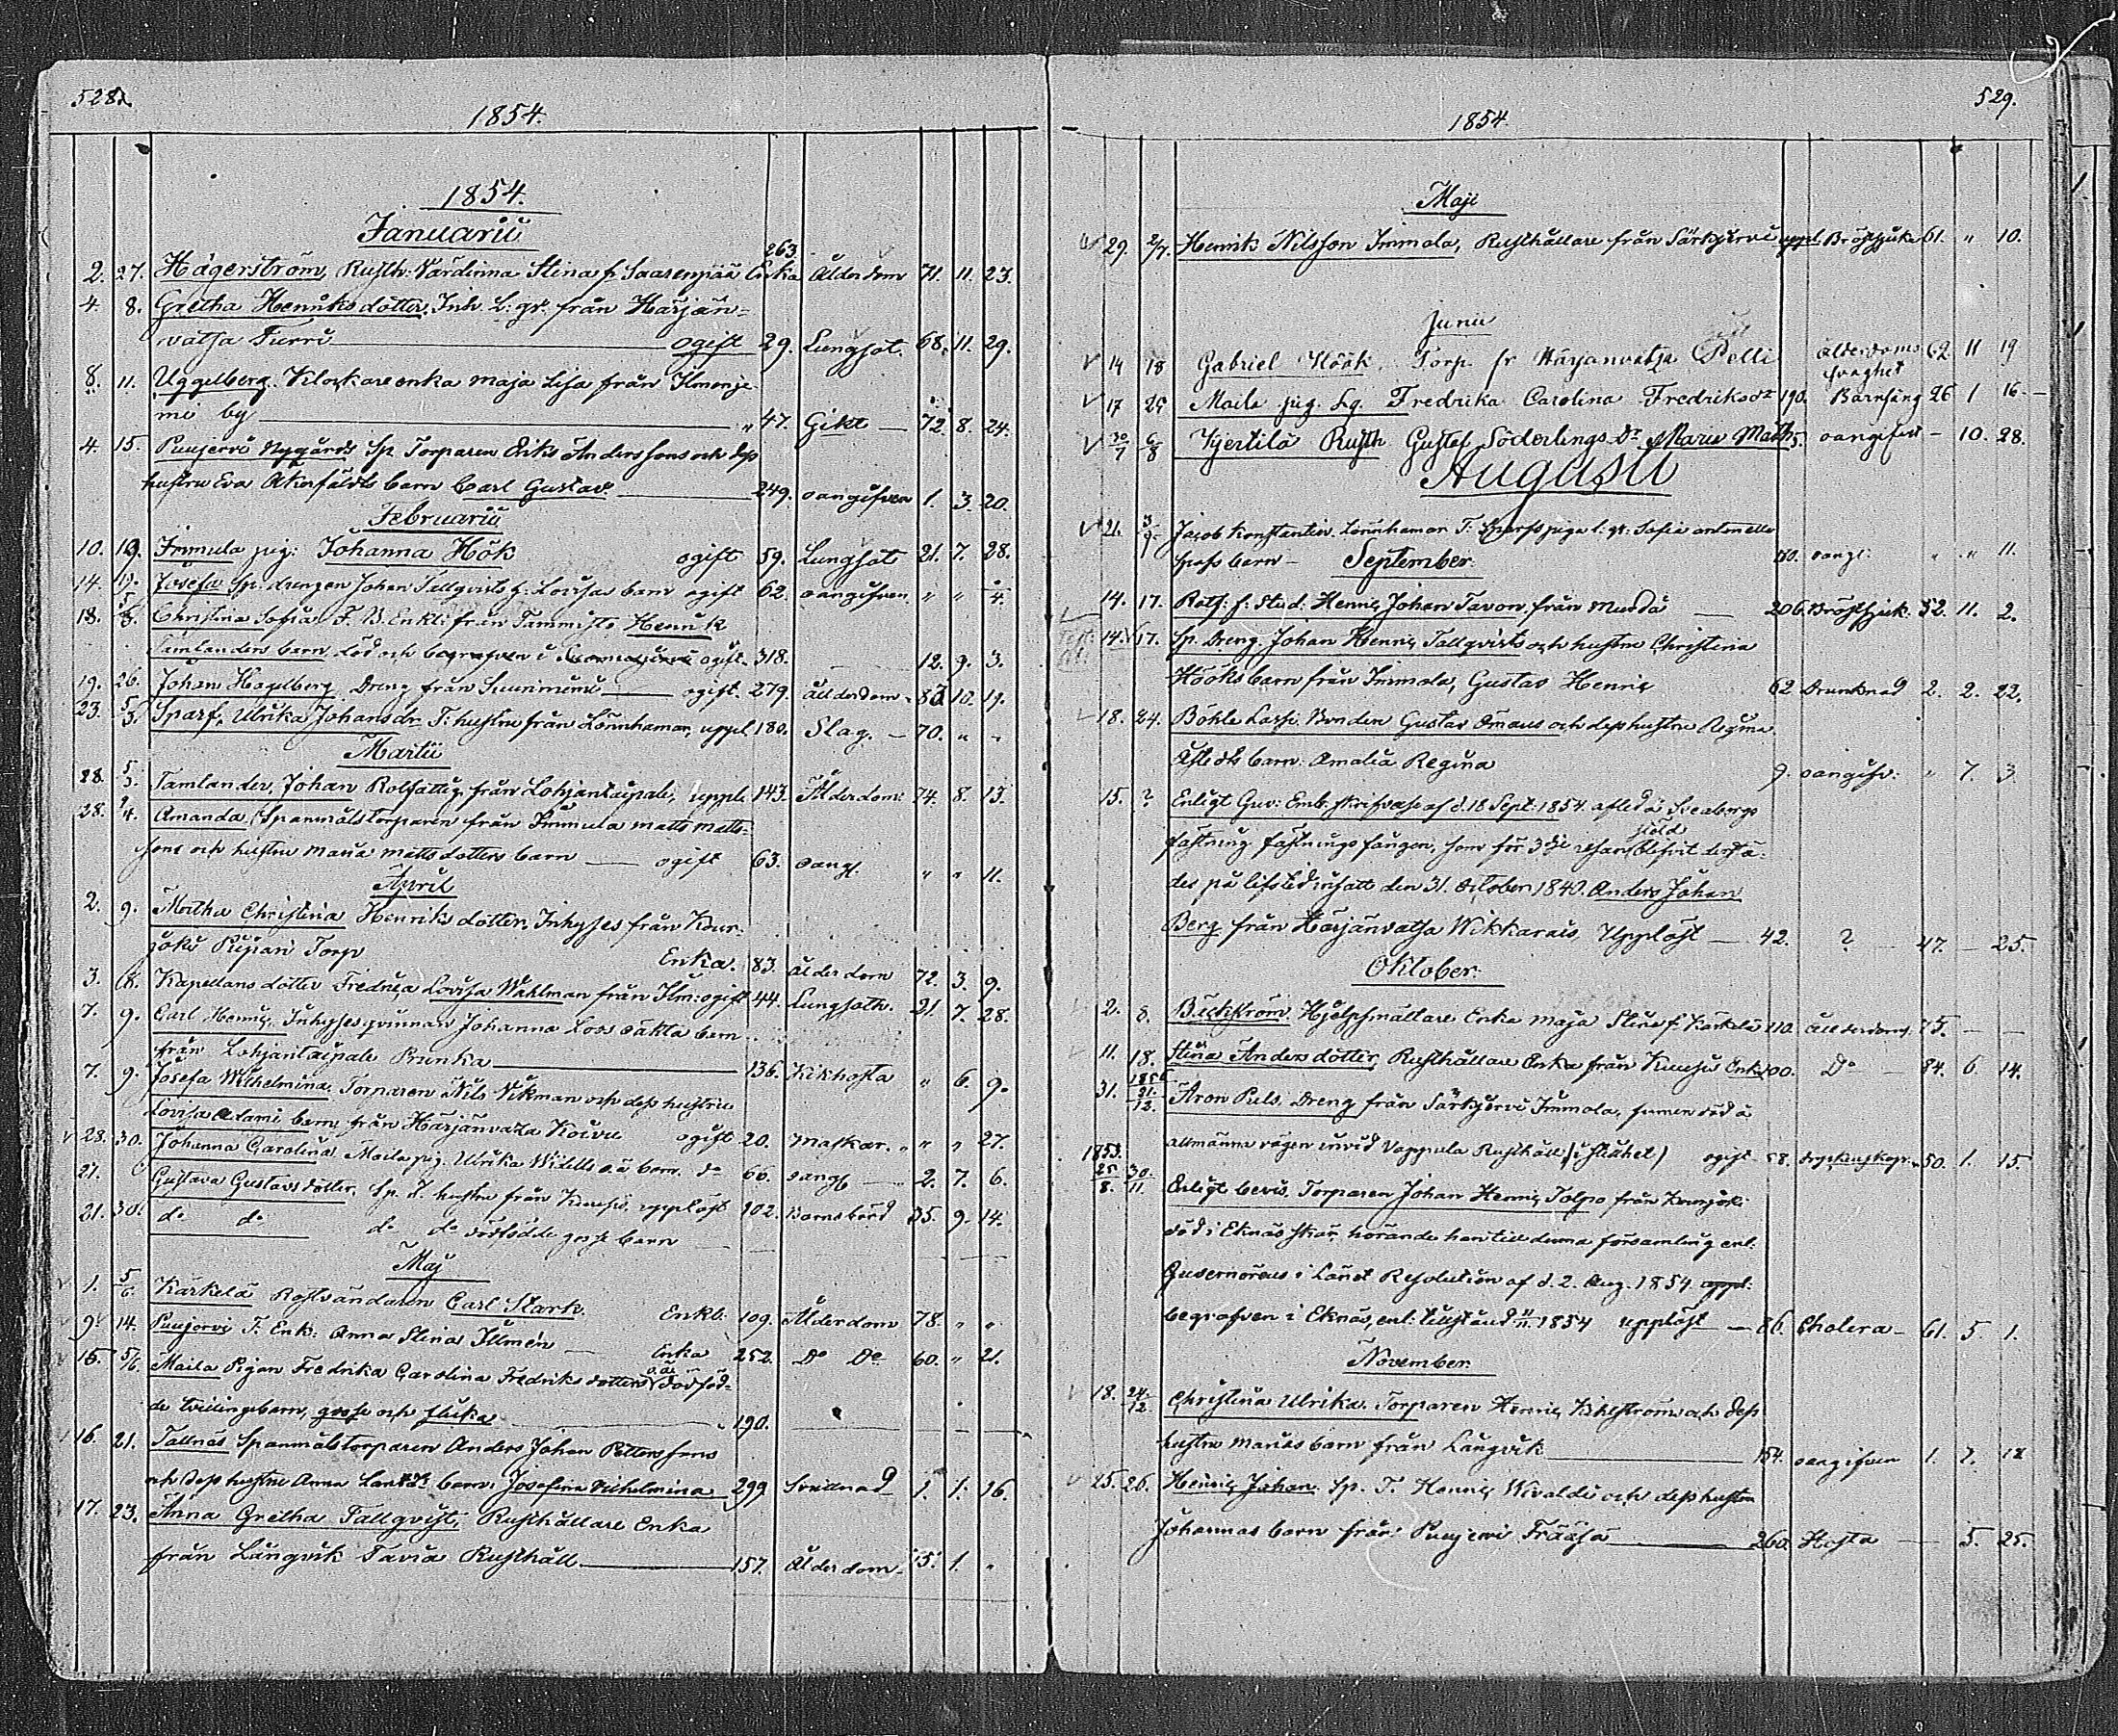 528.
1854.
1854.
Januarii
263.
2. 27. Hägerström, Rusth. Värdinna Stina f. Saarenpää Enka Ålderdom 71. 11. 23.
4. 8. Gretha Henriksdotter, Inh. L: gr. från Härjän-
vatsa Turri ogift 29. Lungsot. 68. 11. 29.
8. 11. Uggelberg. Klockareenka Maja Lisa från Ilmonje-
mi by " 47. Gikt 72. 8. 24.
4. 15. Puujervi Nygårds Sp. Torparen Eriks Anderssons och dess
hustru Eva Åkerfäldts barn Carl Gustav. 249. oangifven 1. 3. 20.
Februarii
10. 19. Immula pig: Johanna Hök ogift 59. Lungsot 21. 7. 28.
14. 19. Josefa Sp. drengen Johan Tallqvists h. Lovisas barn ogift 62. oangifven. " " 4.
18. Christina Sofia T. B. Enkl: från Tammisto Henrik
Tamlanders barn död och begrafven i ogift. 318. 12. 9. 3.
19. 26. Johan Hagelberg Dreng från Suurniemi ogift. 279. ålderdom 80. 10. 19.
23. 5/3. Sparf, Ulrika Johansdr T: hustru från Lönnhamn, uppl. 180. Slag. 70. " "
Martii
28. 5/3. Tamlander, Johan Rotfattig från Lohjantaipale, uppl. 143. Ålderdom: 74. 8. 13.
28. 9/4. Amanda (Spanmålstorparen från Immula Matts Matts-
sons och hustru Maria Mattsdotters barn ogift 63. oangf. " " 11.
April
2. 9. Martha Christina Henriksdotter, Inhyses från Kour-
joki Pispan Torp Enka. 83. ålderdom 72. 3. 9.
3. 8. Kapellans dotter Fredrica Lovisa Wahlman från Ilm: ogift 44. Lungsoth. 21. 7. 28.
7. 9. Carl Henric, Inhysesqvinnan Johanna Loss oäkta barn
från Lohjantaipale Prunka 136. Kikhosta " 6. 9.
7. 9. Josefa Wilhelmina, Torparen Nils Vikman och dess hustru
Lovisa Adami barn, från Härjänvatza Koivu ogift 20. Maskar. " " 27.
23. 30. Johanna Carolina, Maila pig. Ulrika Widells o.ä. barn. do 66. oangf 2. 7. 6.
21. Gustava Gustavsdotter, Sp. T. hustru från Kuusi, upplöst 102. Barnsbörd 35. 9. 14.
21. 30. do do do do dödfödde gosse barn
Maj
1. 5/6. Kärkelä Rotevändaren Carl Stark. Enkl. 109. Ålderdom 78. " "
9. 14. Puujervi T. Enk: Anna Stina Illmén Enka 252. Do Do 60. " 21.
15. 5/6. Maila Pigan Fredrika Carolina Fredriksdotters o.ä. dödföd-
de tvillingsbarn, gosse och flicka 190.
16. 21. Tallnäs Spanmålstorparen Anders Johan Petterssons
och dess hustru Anna barn, Josefina Vilhelmina 299 1. 1. 16.
17. 23. Anna Gretha Tallqvist, Rusthållare Enka
från Långvik Tavia Rusthåll 157. Ålderdom. 75. 1. "
529.
1854.
Maji
29. 2/7. Henrik Nilsson Immola, Rusthållare från Särkjervi uppl. Bröstsjuka 61. " 10.
Junii
14 18 Gabriel Höök, Torp. fr Härjanvatsa Pelli Ålderdoms 62 11 19
svaghet
17 25 Maila pig. Lg. Fredrika Carolina Fredriksdr 190. Barnsäng 26 1 16
30/7 6/8 Kjertilä Rusth Gustaf Söderlings Dr Maria Math. oangifvet 10. 28.
Augusti
21. 3/9. Jacob Konstantin. Lönnhamn T. Sparfs piga l. gr. Sofia Antonetta
Spafs barn 180. oangf: " " 11.
September
14. 17. Rotf: f: Stud: Henric Johan Tavon, från Muuda 206. Bröstsjuk. 52. 11. 2.
14. 17. Sp. Dreng Johan Henric Tallqvists och hustru Christina
Hööks barn från Immola, Gustav Henric 62 Drunknad 2. 2. 22.
18. 24. Böhle Lassi. Bonden Gustav Omans och dess hustru Regina
barn. Amalia Regina 9. oangifv: " 7. 3.
15. ? Enligt Guv: Emb. skrifvelse af d. 18 Sept. 1854 afled å Sveaborgs
fästning fästningsfången, som för 3dje resan stöld blifvit dömd
des på lifstid insatt den 31. October 1840. Anders Johan
Berg från Härjänvatsa Wikkarais Upplöst 42. ? 47. 25.
Oktober.
2. 8. Bäckström Hjelpsmältare Enka Maja Stina f. Kärkelä 110. Ålderdoms. 75.
11. 18. Stina Andersdotter, Rusthållare Enka från Kuusi Enka 100. Do 84. 6 14.
1856
31. 31/12. Aron Puls. Dreng från Särkjervi Immola, funnen död å
allmänna vägen invid Vappula Rusthåll (i slädet) ogift 58. 50. 1. 15.
1853.
25/8. 30/11. Enligt bevis, Torparen Johan Henric Tolpo från Kourjoki
död i Eknäs skär, hörande han till denna församling enl.
Guvernörens i Länet Resolution af d. 2. Aug. 1854. uppl:
begrafven i Eknäs, enl: 1854 upplöst 86. Cholera 61. 5 1.
November.
18. 24/12. Christina Ulrika. Torparen Henric Kihlströms och dess
hustru Marias barn från Långvik 154. oangifven 1. 7. 12
25. 26. Henric Johan. Sp. T. Henric Wivaldi och dess hustru
Johannas barn från Puujervi Trääsa 260. Hosta 5. 25.